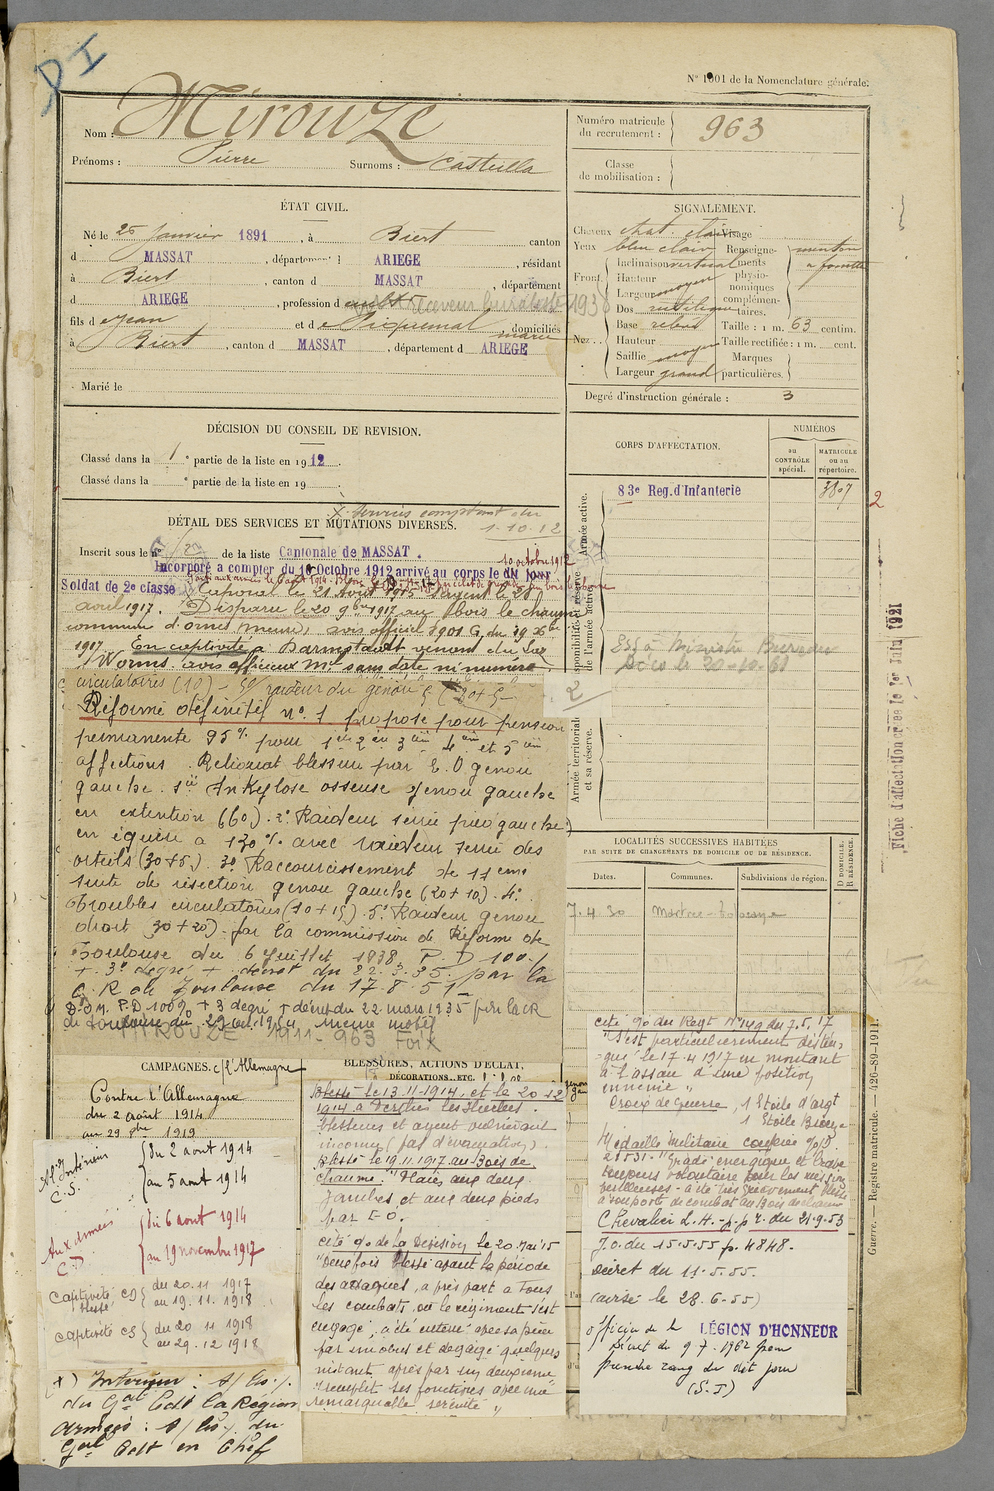 PI
N° 1001 de la Nomenclature générale.
Nom : Mirouze
Prénoms : Pierre Surnoms : Castella
Numéro matricule du recrutement : 963
Classe de mobilisation :
ÉTAT CIVIL.
Né le 25 Janvier 1891, à Biert canton
d MASSAT, département d ARIEGE, résidant
à Biert, canton d MASSAT, département
d ARIEGE, profession d
fils d e Jean et d e Piquemal marie, domiciliés
à Biert, canton d MASSAT, département d ARIEGE
Marié le
SIGNALEMENT.
Cheveux chat. clair Visage
Yeux bleu clair Renseigne-
Front Inclinaison vertical ments
Hauteur moyen physio-
Largeur nomiques
Dos rectiligne complémen-taires.
Nez Base relevé Taille : 1 m. 63 centim.
Hauteur Taille rectifiée : 1 m. cent.
Saillie moyen Marques
Largeur grand particulières.
menton à fossette
Degré d'instruction générale : 3
DÉCISION DU CONSEIL DE REVISION.
Classé dans la 1e partie de la liste en 1912.
Classé dans la e partie de la liste en 19
DÉTAIL DES SERVICES ET MUTATIONS DIVERSES.
X Services comptant du
1.10.12
Inscrit sous le n° de la liste Cantonale de MASSAT.
Incorporé a compter du 10 Octobre 1912 arrivé au corps le dit jour
10 octobre 1912
Soldat de 2e classe Caporal le 21 Août 1915 Sergent le 28
avril 1917. Disparu le 20 9bre 1917 au bois le chaume
commune d'ornes meuse, avis officiel
1917 En captivité à Darmstadt venant du Laz
Worms. avis officieux Mel sans date ni numéro
circulatoires (10) - 5° raideur du genou
Réformé définitif n° 1 proposé pour pension
permanente 95% pour 1re 2e 3e 4e et 5e
affections. Reliquat blessure par E. O genou
gauche. 1° Ankylose osseuse genou gauche
en extention (60). 2° Raideur serrée pied gauche
en équin à 130% avec raideur serrée des
orteils (30+5). 3° Raccourcissement de 11 cms
suite de résection genou gauche (20+10). 4°
Troubles circulatoires (10+15). 5° Raideur genou
droit (30+20). par la commission de Réforme de
Toulouse du 6 Juillet 1938. P. D 100%
+ 3° degré + décret du 22.3.35. par la
C. R de Toulouse du 17.8.51
P.D 100% + 3 degré + décret du 22 mars 1935 par la CR
de Toulouse du 29 1954 même motif
MIROUZE 1911-963 Foix
CORPS D'AFFECTATION.
NUMÉROS
au CONTRÔLE spécial.
MATRICULE ou au répertoire.
Armée active.
83e Reg. d'Infanterie 3807
2
Disponibilité et réserve de l'armée active.
2
Armée territoriale et sa réserve.
Fiche d'affectation créée le 1er Juin 1921
LOCALITÉS SUCCESSIVES HABITÉES
PAR SUITE DE CHANGEMENTS DE DOMICILE OU DE RÉSIDENCE.
Dates. Communes. Subdivisions de région. D DOMICILE. R RÉSIDENCE.
7.4.30
CAMPAGNES. c/ l'Allemagne
Contre l'Allemagne
du 2 août 1914
au 29 1919
Al' Intérieur C.S. du 2 aout 1914
au 5 aout 1914
Aux armées C.D. du 6 aout 1914
au 19 novembre 1917
Captivité CD blessé du 20.11 1917
au 19.11.1918
Captivité CS du 20 11 1918
au 29.12 1918
(x) Intérieur : S/ Cs/.
du Gal Cdt la Région
Armées : S/ Cs/. du
Gal Cdt en Chef
BLESSURES, ACTIONS D'ÉCLAT,
DÉCORATIONS, ETC.
Blessé le 13.11.1914, et le 20.12
1914 à Perthes les Hurlus.
Blessures et agent vulnérant
inconnu (pas d'évacuation).
Blessé le 19.11.1917 au Bois de
chaume. Plaies aux deux
jambes et aux deux pieds
par E. O.
Cité g/o de la Division le 20. mai 15
"Deux fois blessé avant la période
des attaques, a pris part à tous
les combats, où le régiment s'est
engagé, a été enterré avec sa pièce
par un obus et dégagé quelques
instants après par un deuxième
remplit ses fonctions avec une
remarquable sérénité"
cité g/o du Regt N° 149 du 7.5.17
"S'est particulièrement distin-
gué le 17.4.1917 en montant
à l'assaut d'une position
ennemie"
Croix de Guerre, 1 Etoile d'argt
1 Etoile Bronze
Médaille militaire
21531. "Gradé énergique et brave
toujours volontaire pour les missions
périlleuses - a été très grièvement blessé
à son poste de combat au Bois de chaume
Chevalier L. H. - p. p. r. du 21.9.53
J.O. du 15.5.55 p. 4848.
Décret du 11.5.55.
(avisé le 28.6.55)
Officier de la LÉGION D'HONNEUR
Décret du 9.7.1962 pour
prendre rang du dit jour
(S.J)
Guerre. — Registre matricule. — 426-89-1911.